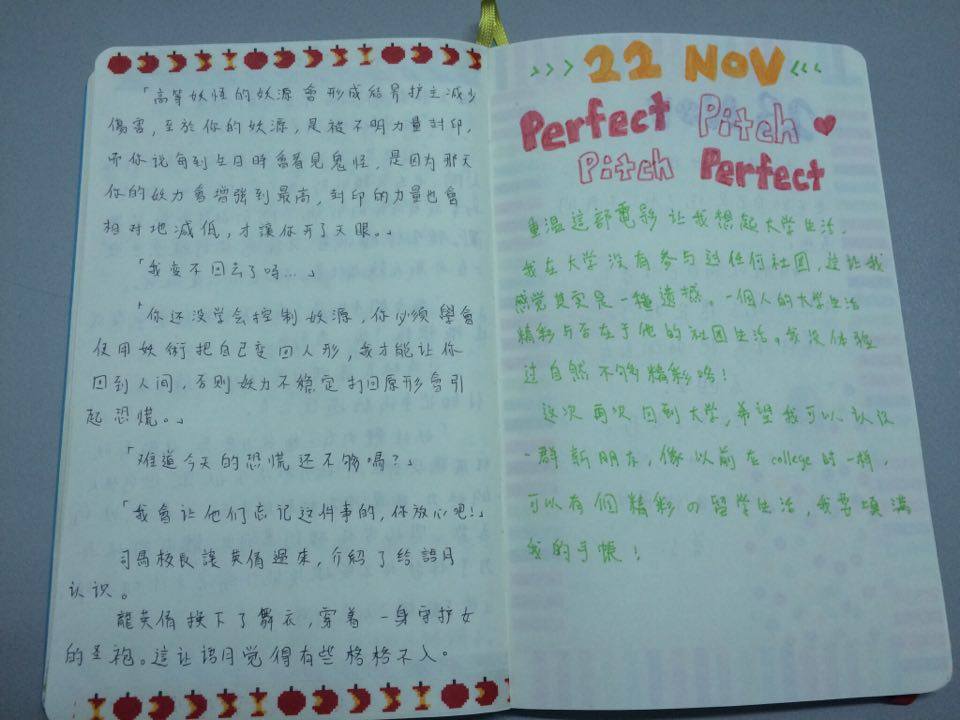 「高等妖怪的妖源會形成結界护主减少
傷害，至於你的妖源，是被不明力量封印，
而你说每到生日時會看見鬼怪，是因为那天
你的妖力會增強到最高，封印的力量也會
相对地減低，才讓你开了天眼。」
「我变不回去了吗…」
「你还没学会控制妖源，你必须學會
使用妖術把自己变回人形，我才能让你
回到人间，否則妖力不稳定打回原形會引
起恐慌。」
「难道今天的恐慌还不够嗎？」
「我會让他们忘记这件事的，你放心吧!」
司馬校長讓英俏過來，介紹了给語月
认识。
龍英俏换下了舞衣，穿着一身守护女
的圣袍。這让語月觉得有些格格不入。
>>> 22 NOV <<<
Perfect Pitch
Pitch Perfect
重温這部電影让我想起大学生活。
我在大学没有参与过任何社团，这让我
感觉其实是一種遺憾。一個人的大学生活
精彩与否在于他的社团生活。我没体验
过自然不够精彩咯!
这次再次回到大学，希望我可以认识
一群新朋友，像以前在college时一样，
可以有個精彩の留学生活，我要填满
我的手帳!